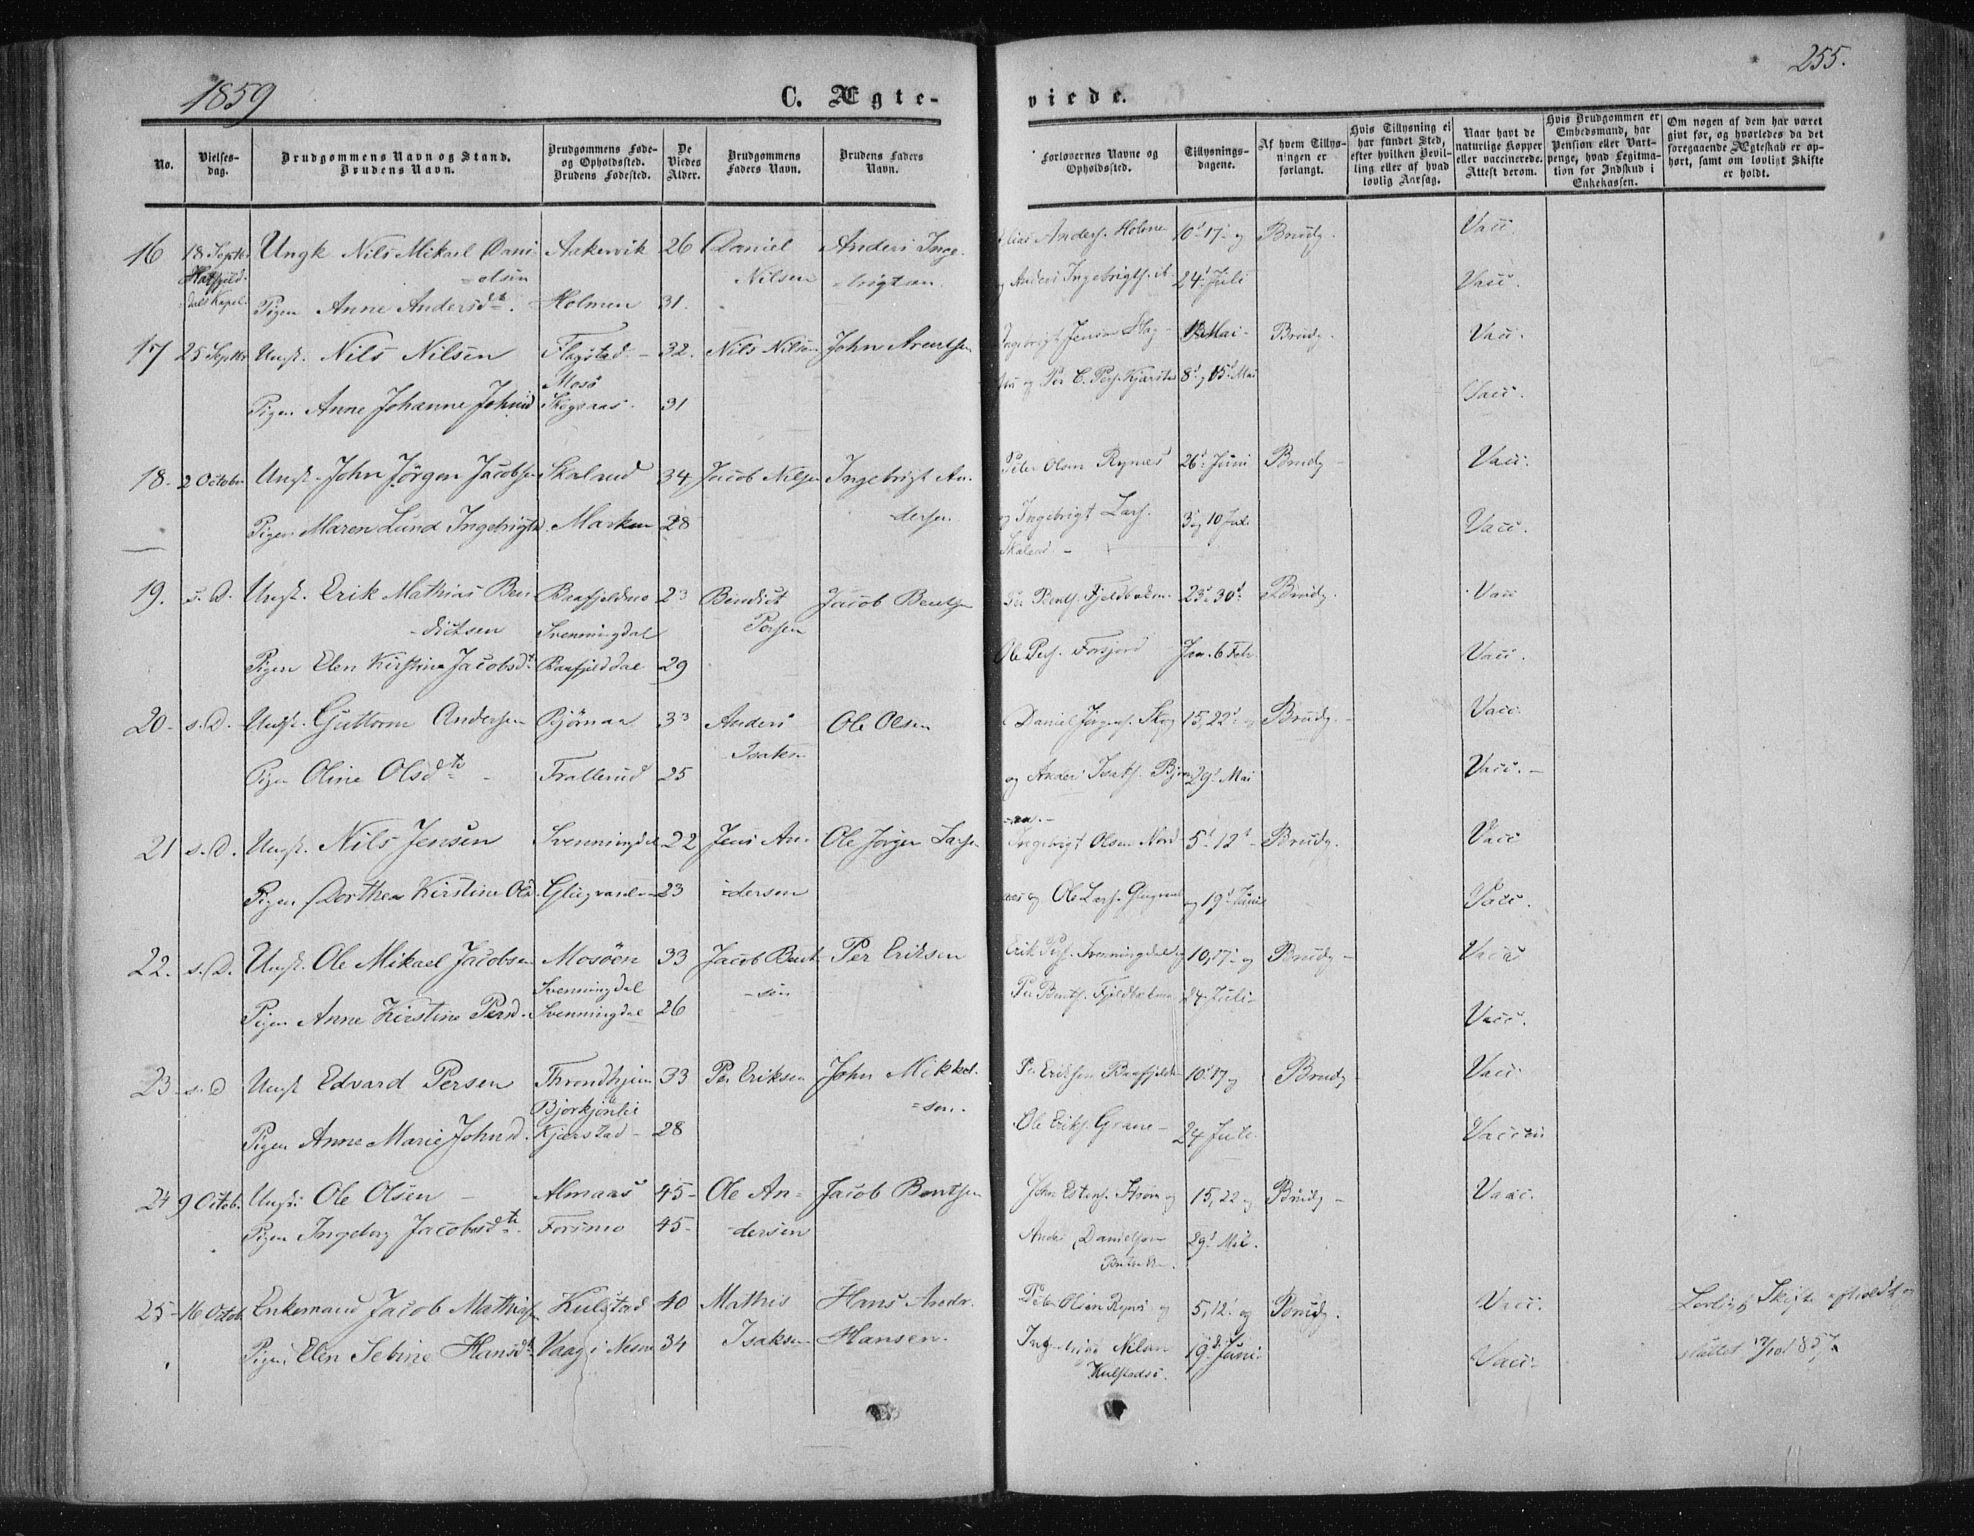 1859
C. Ægte-
viede.
255.
No.
Vielses-
dag.
Brudgommens Navn og Stand.
Brudens Navn.
Brudgommens Føde-
og Opholdssted.
Brudens Fødested.
De
Viedes
Alder.
Brudgommens
Faders Navn.
Brudens Faders
Navn.
Forlovernes Navne og
Opholdssted.
Tillysnings-
dagene.
Af hvem Tillys-
ningen er
forlangt.
Hvis Tillysning ei
har fundet Sted,
efter hvilken Bevil-
ling eller af hvad
lovlig Aarsag.
Naar havt de
naturlige Kopper
eller vaccinerede.
Attest derom.
Hvis Brudgommen er
Embedsmand, har
Pension eller Vart-
penge, hvad Legitima-
tion for Indskud i
Enkekassen.
Om nogen af dem har været
givt før, og hvorledes da det
foregaaende Ægteskab er op-
hørt, samt om lovligt Skifte
er holdt.
16 18 Septbr Ungk Nils Mikael Dani Aakervik 26 Daniel Anders Inge- Anders. Holme 10' 17' og Brudg. Vacc.
Hatfjeld- -elsen Nilsen -brigtsen Anders Ingebrigts. 24' Juli Vacc.
dals Kapel Pigen Anne Andersdtr. Holmen 31.
17 25 Septbr Ungk. Nils Nilsen Flagstad - 32. Nils Nilsen John Arentsen Ingebrigt Jensen Mai - Brudg. Vacc.
Mosö og Per C. Pers. Kjærstad 8' og 15' Mai
Pigen Anne Johanne Johnsd Skogsaas. 31 Vacc.
18. 2 October Ungk. John Jörgen Jacobsen Skaland 34 Jacob Nilsen Ingebrigt An- Peter Olsen Rynæs 26' Juni Brudg - Vacc.
Pigen Maren Lund Ingebrigtsd. Marken 28 dersen og Ingebrigt Lars. 3' og 10 Juli Vacc.
Skaland -
19. s. D. Ungk. Erik Mathias Ben Baafjeldmo 23 Bendict Jacob Bentsen Per Bents. 23' 30' Brudg. Vacc
-dictsen Svenningdal Persen
Pigen Elen Kirstine Jacobsdt Baafjelddal 29 Ole Pers. Forsjord Jan. 6 Febr. Vacc.
20. s. D. Ungk. Guttorm Andersen Bjørnaa 33 Anders Ole Olsen Daniel Jörgens. Skog 15, 22' og Brudg. - Vacc.
Isaksen
Pigen Oline Olsdtr - Trallerud 25 og Anders Isaks. Bjørn 29' Mai Vacc. -
-aa. -
21 s. D. Ungk. Nils Jensen Svenningdal 22 Jens An- Ole Jörgen Larsen Ingebrigt Olsen Nord 5' 12' - Brudg. Vacc
Pigen Dorthea Kirstine Olsd. 23 -dersen og Ole Lars. og 19' Juni Vacc.
22. s. D. Ungk. Ole Mikael Jacobsen Mosöen 33 Jacob Bent Per Eriksen Erik Pers. Svenningdal og 10, 17' og Brudg - Vacc
Svenningdal -sen Per Bents. 24 Juli -
Pigen Anne Kirstine Persd. Svenningdal 26 Vacc.
23 s. D Ungk Edvard Persen Throndhjem 33 Per Eriksen John Mikkel- Per Eriksen Baafjeld 10' 17 og Brudg Vacc.
Bjorkjønlie =sen.
Pigen Anne Marie Johnsd. Kjærstad - 28 Ole Eriks. Grane - 24 Juli. Vaccen
24 9 Octob. Ungk. Ole Olsen - Almaas 45 - Ole An- Jacob Bentsen John Estens. 15, 22 og Brudg - Vacc.
Pigen Ingeborg Jacobsdtr. Forsmo 45 - -dersen Anders Danielsen 29' Mai.
25 - 16 Octob. Enkemand Jacob Mathisen Kulstad 40 Mathis Hans Andr. Peter Olsen Rynes og 5, 12' og Brudg. Vacc. Lovligt Skifte afholdt og
Pigen Elen Sebine Hansdtr Vaag i Nesne 34 Isaksen Hansen. Nilsen 19d Juni Vacc. sluttet 857.
Kulstadsö.